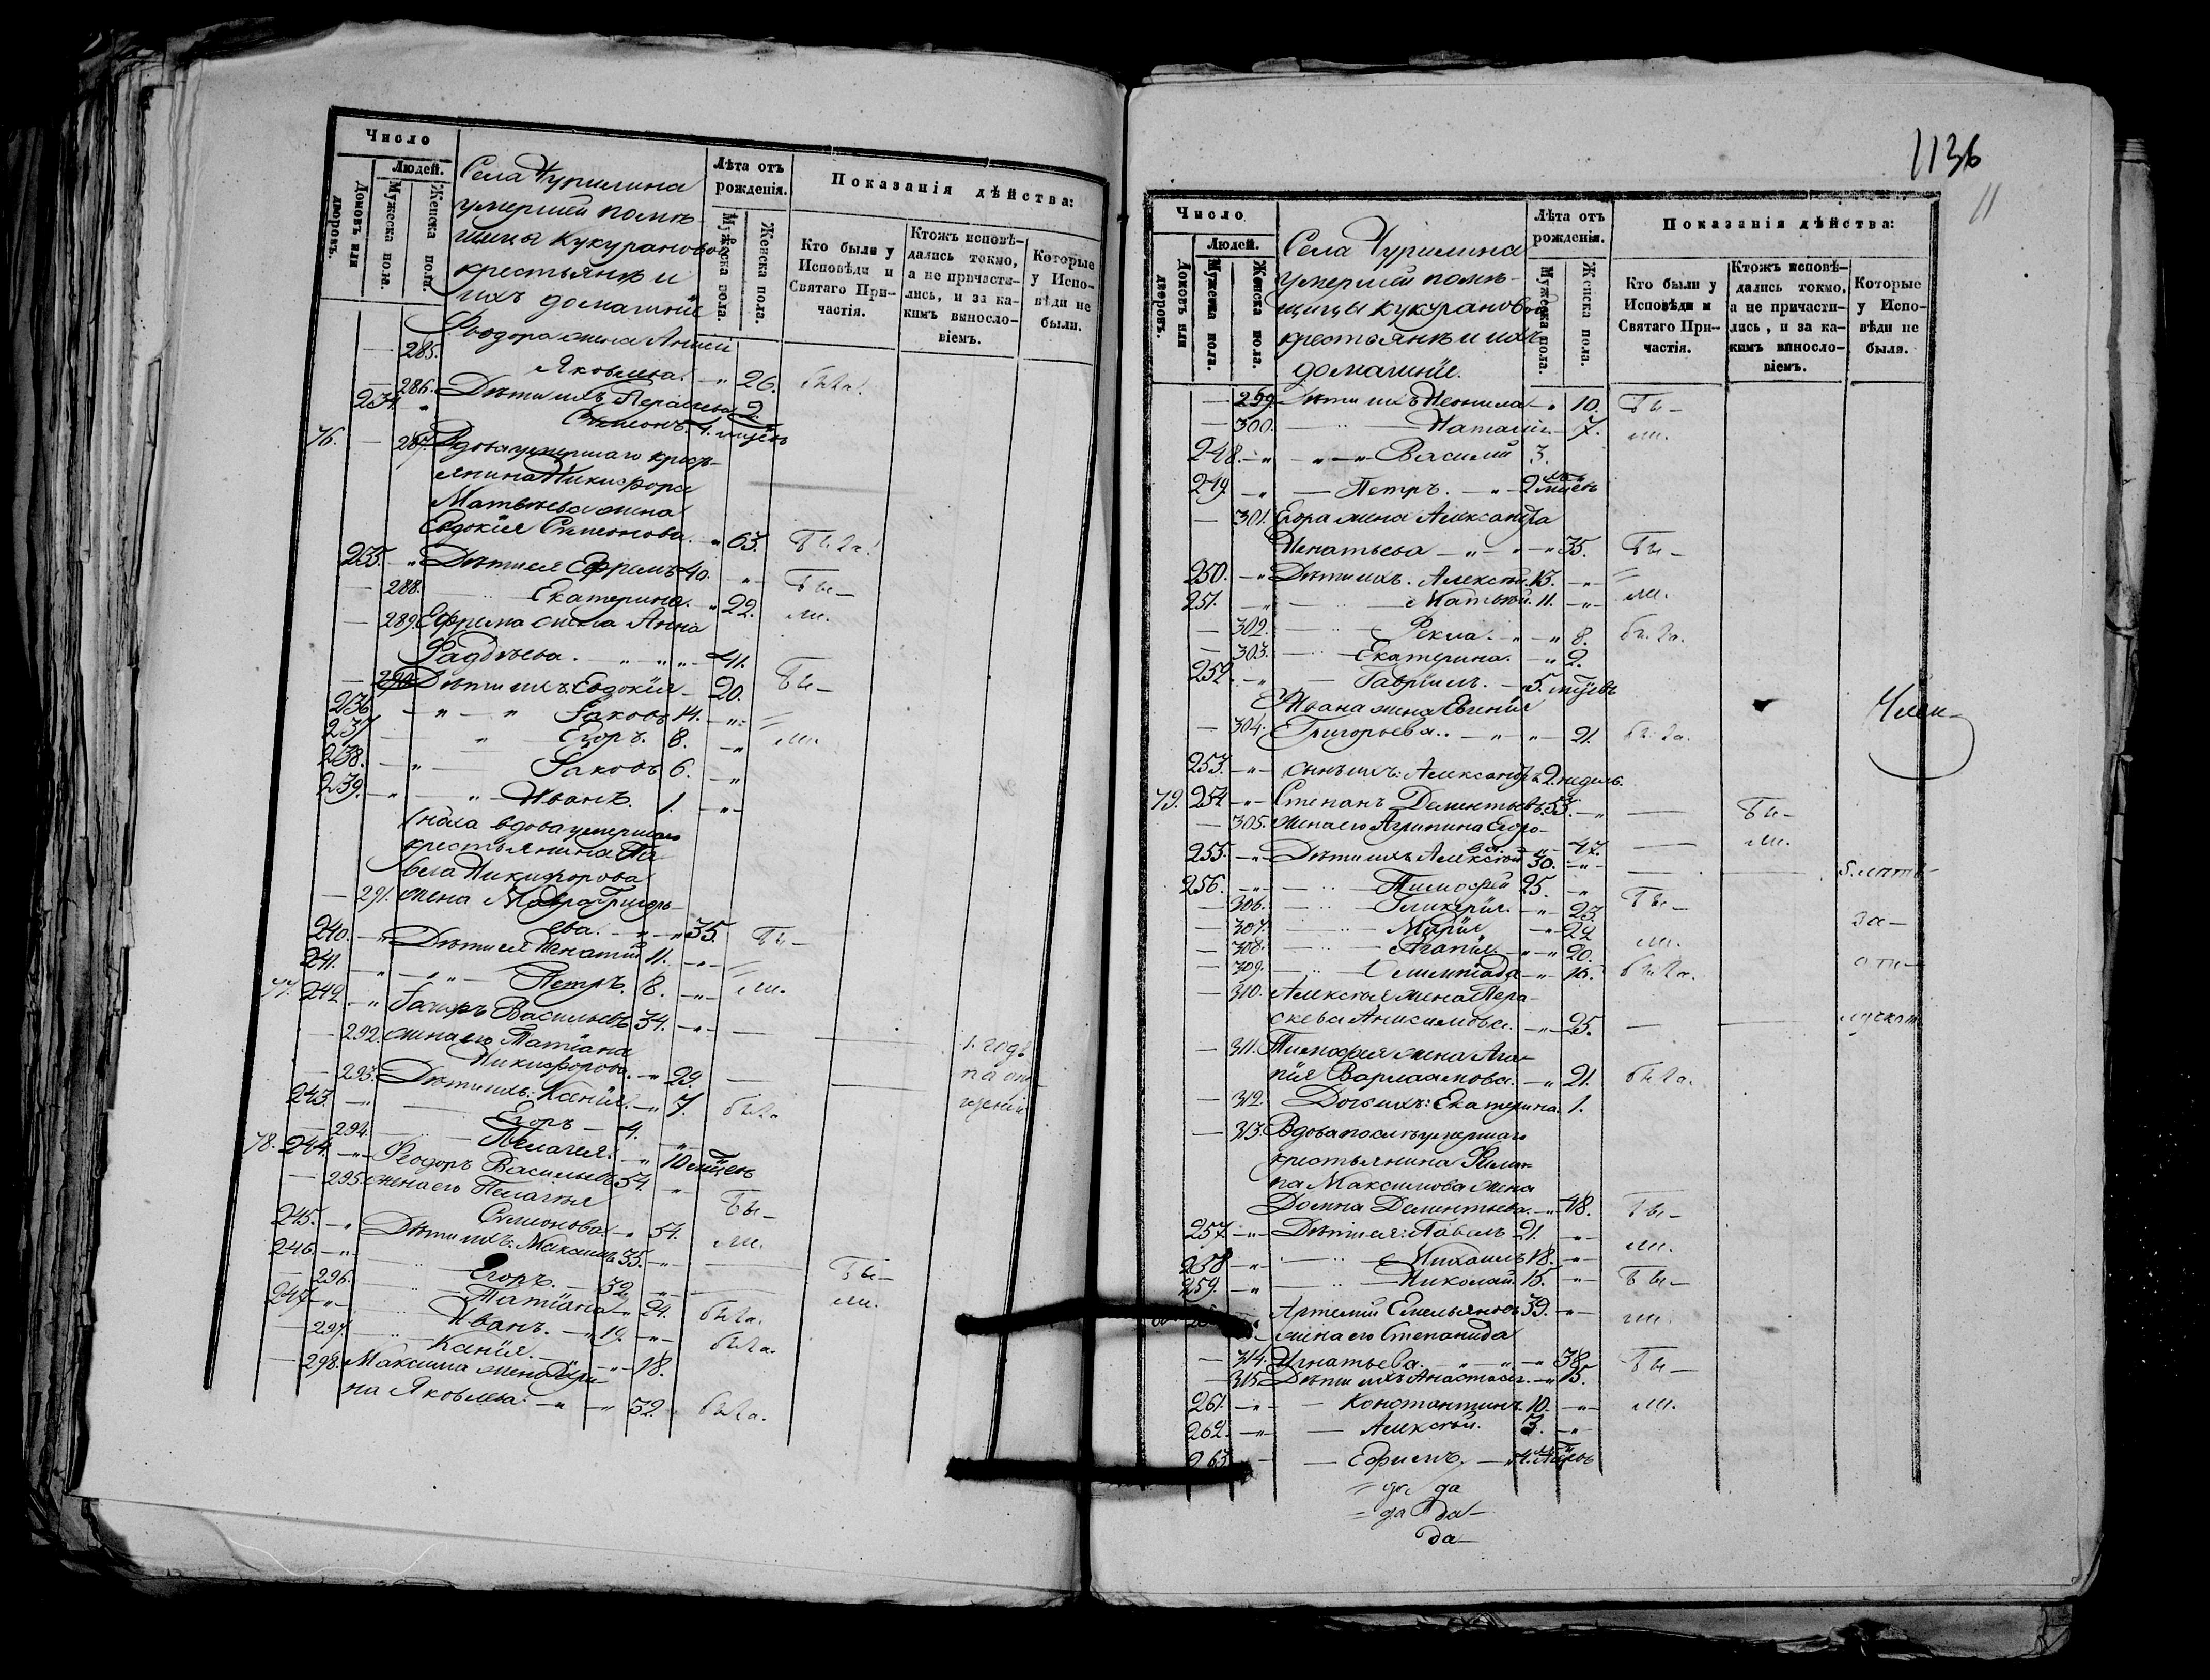 Число
Людей.
Домовъ или дворовъ.
Мужеска пола.
Женска пола.
Села Чурилина
умершей помѣ-
щицы Кукурановой
крестьянѣ и
ихъ домашніе
Лѣта отъ рожденія.
Мужеска пола.
Женска пола.
Показанія дѣйства:
Кто были у Исповѣди и Святаго При-частія.
Ктожъ исповѣ-дались токмо, а не причасти-лись, и за ка-кимъ винносло-віемъ.
Которые у Испо-вѣди не были.
— 285. Ѳеодора жена
Яковлева. — " 26. была.
— 286. Дѣти ихъ 2.
234. " Симеонъ. 4. мцѣвъ
76. — 287. Вдова умершаго кресть-
янина Никифора
Матвѣева жена
Евдокія Симеонова. " 63. была.
235. " Дѣти ея Ефремъ 40. " Бы-
— 288. Екатерина. " 22. ли.
— 289. Ефрема жена Анна
" " 41.
— 290. Дѣти ихъ Евдокія — 20. Бы-
236. — " — " Іаковъ 14. — "
237 " Егоръ. 8. " ли.
238. — " Іаковъ 6. — "
239. — " — " — Иванъ. 1. — "
вдова умершаго
крестьянина Па-
вела Никифорова
— 291. жена Мавра Григорь-
ева. — " — " 35. Бы-
240. — " Дѣти ея Игнатій 11. — "
241. — " — " Петръ. 8. — " ли.
77. 242. — " Васильевъ 34. — " —
— 292. жена его Татіана
Никифорова. — " 29. — — 1. годъ
— 293. Дѣти ихъ: Ксенія. — " 7. была.
243. — " Егоръ — 4.
— 294. Пелагея. — " 10 мцевъ
78. 244. — " Ѳеодоръ Васильевъ 54. — "
— 295. жена его Пелагія
Симеонова. " 54. Бы-
245. — " Дѣти ихъ: Максимъ 35. — " ли.
246. — " Егоръ. — 32. — " Бы-
— 296. Татіана " 24. была. ли.
247 — " Иванъ. — " 19. — "
— 297. Ксенія — " 18. была.
— 298. Максима жена Ири-
на Яковлева. — " — " 32. была.
1136
11
Число
Людей.
Домовъ или дворовъ.
Мужеска пола.
Женска пола.
Села Чурилина
умершей помѣ-
щицы Кукурановой
крестьянѣ и ихъ
домашніе.
Лѣта отъ рожденія.
Мужеска пола.
Женска пола.
Показанія дѣйства:
Кто были у Исповѣди и Святаго При-частія.
Ктожъ исповѣ-дались токмо, а не причасти-лись, и за ка-кимъ винносло-віемъ.
Которые у Испо-вѣди не были.
— 299. Дѣти ихъ Неонила — " 10. Бы-
— 300. — " — Наталія — 7. ли.
248. — " " — " Василій 3.
249 — " — Петръ. — " 2 мцевъ
— 301. Егора жена Александра
Игнатьева — " — " — " 35. Бы-
250. — " Дѣти ихъ. Алексѣй. 13. — "
251. — " — " — Матвѣй. 11. — " ли.
— 302. — " — Фекла. — " — " 8. была.
— 303. — " — Екатерина. — " 2.
252. — " — Гавріилъ. — " 5. мцевъ
Ивана жена Евгенія
— 304. Григорьева. — " " — 21. была.
253. — " — сынъ ихъ: Александръ 2 недель.
79. 254 — " — Степанъ Дементьевъ 53. — " — Бы-
— 305. жена его Агрипина Егоро-
ва. — " 47. — ли.
255. — " — Дѣти ихъ Алексѣй 30. — " — — 5. лѣтъ
256. — " — " — Тимофей 25. — "
— 306. — " — Гликерія. — " 23. Бы-
— 307. — " — Марія — " 22 за-
— 308. — " — Агапія — " — " 20. ли.
— 309. — " — Олимпіада — " 16. была. отлу-
— 310. Алексѣя жена Пара-
скева Анисимова. — " 25. —
— 311. Тимофея жена Ага-
пія Варлаамова. — " 21. была.
— 312. Дочь ихъ: Екатерина. 1.
— 313. Вдова послѣ умершаго
крестьянина Филип-
па Максимова жена
Домна Дементьева. — " 48. Бы-
257 — " — Дѣти ея: Павелъ 21. — " ли.
258 — " — " — Михаилъ 18. — "
259. — " — " — Николай. 15. — " Бы-
Артемій Емельяновъ 39. — " ли.
жена его Степанида
— 314. Игнатьева. — " — " — " 38. Бы-
— 315. Дѣти ихъ Анастасія. — " 15.
261. — " — Константинъ. 10. — " ли.
262. — " — Алексѣй. 3. — "
263. — Ефимъ. — " 4. мцевъ
да
да да
да